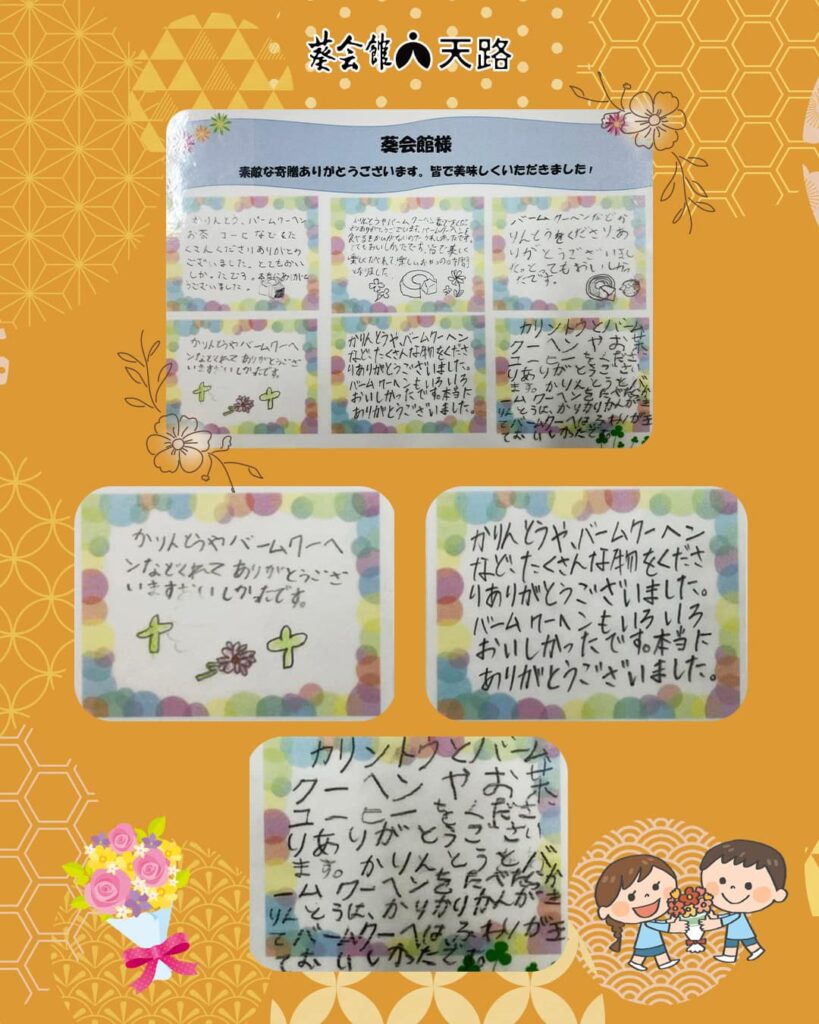 葵会館 天路
葵会館様
素敵な寄贈ありがとうございます。皆で美味しくいただきました！
かりんとう、バームクーヘン
お茶 コーヒなどもた
くさんくださりありがとの
ございました。とてもおい
しかったです。本当にありがとう
うございました。
食べるきかいがないのでうれしかったです。
とてもおいしかったです。皆で美しく
楽しくたべれて楽しいおやつの時間
となりました
バームクーヘンなどか
りんとうをくださりあ
りがとうございまし
とてもおいしかっ
たです。
かりんとうやバームクーヘ
ンなどくれて ありがとうござい
いますおいしかったです。
かりんとうや、バームクーヘン
など、たくさんな物をくださ
りありがとうございました。
バームクーヘンもいろいろ
おいしかったです。本当に
ありがとうございました。
カリントウとバーム
クーヘンやお茶
コーヒーをくださ
りありがとうござい
ます。かりんとうとバ
ームクーヘンをたべた
りんとうは、かりかりかんがき
てバームクーヘは ふわ が
ておいしかたです。
かりんとうやバームクーヘ
ンなどくれて ありがとうござい
いますおいしかったです。
かりんとうや、バームクーヘン
など、たくさんな物をくださ
りありがとうございました。
バームクーヘンもいろいろ
おいしかったです。本当に
ありがとうございました。
カリントウとバーム
クーヘンやお茶
コーヒーをくださ
りありがとうござい
ます。かりんとうとバ
ームクーヘンをたべた
りんとうは、かりかりかんがき
てバームクーヘは ふわ が
ておいしかたです。